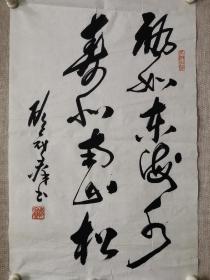 福如东海水
寿比南山松